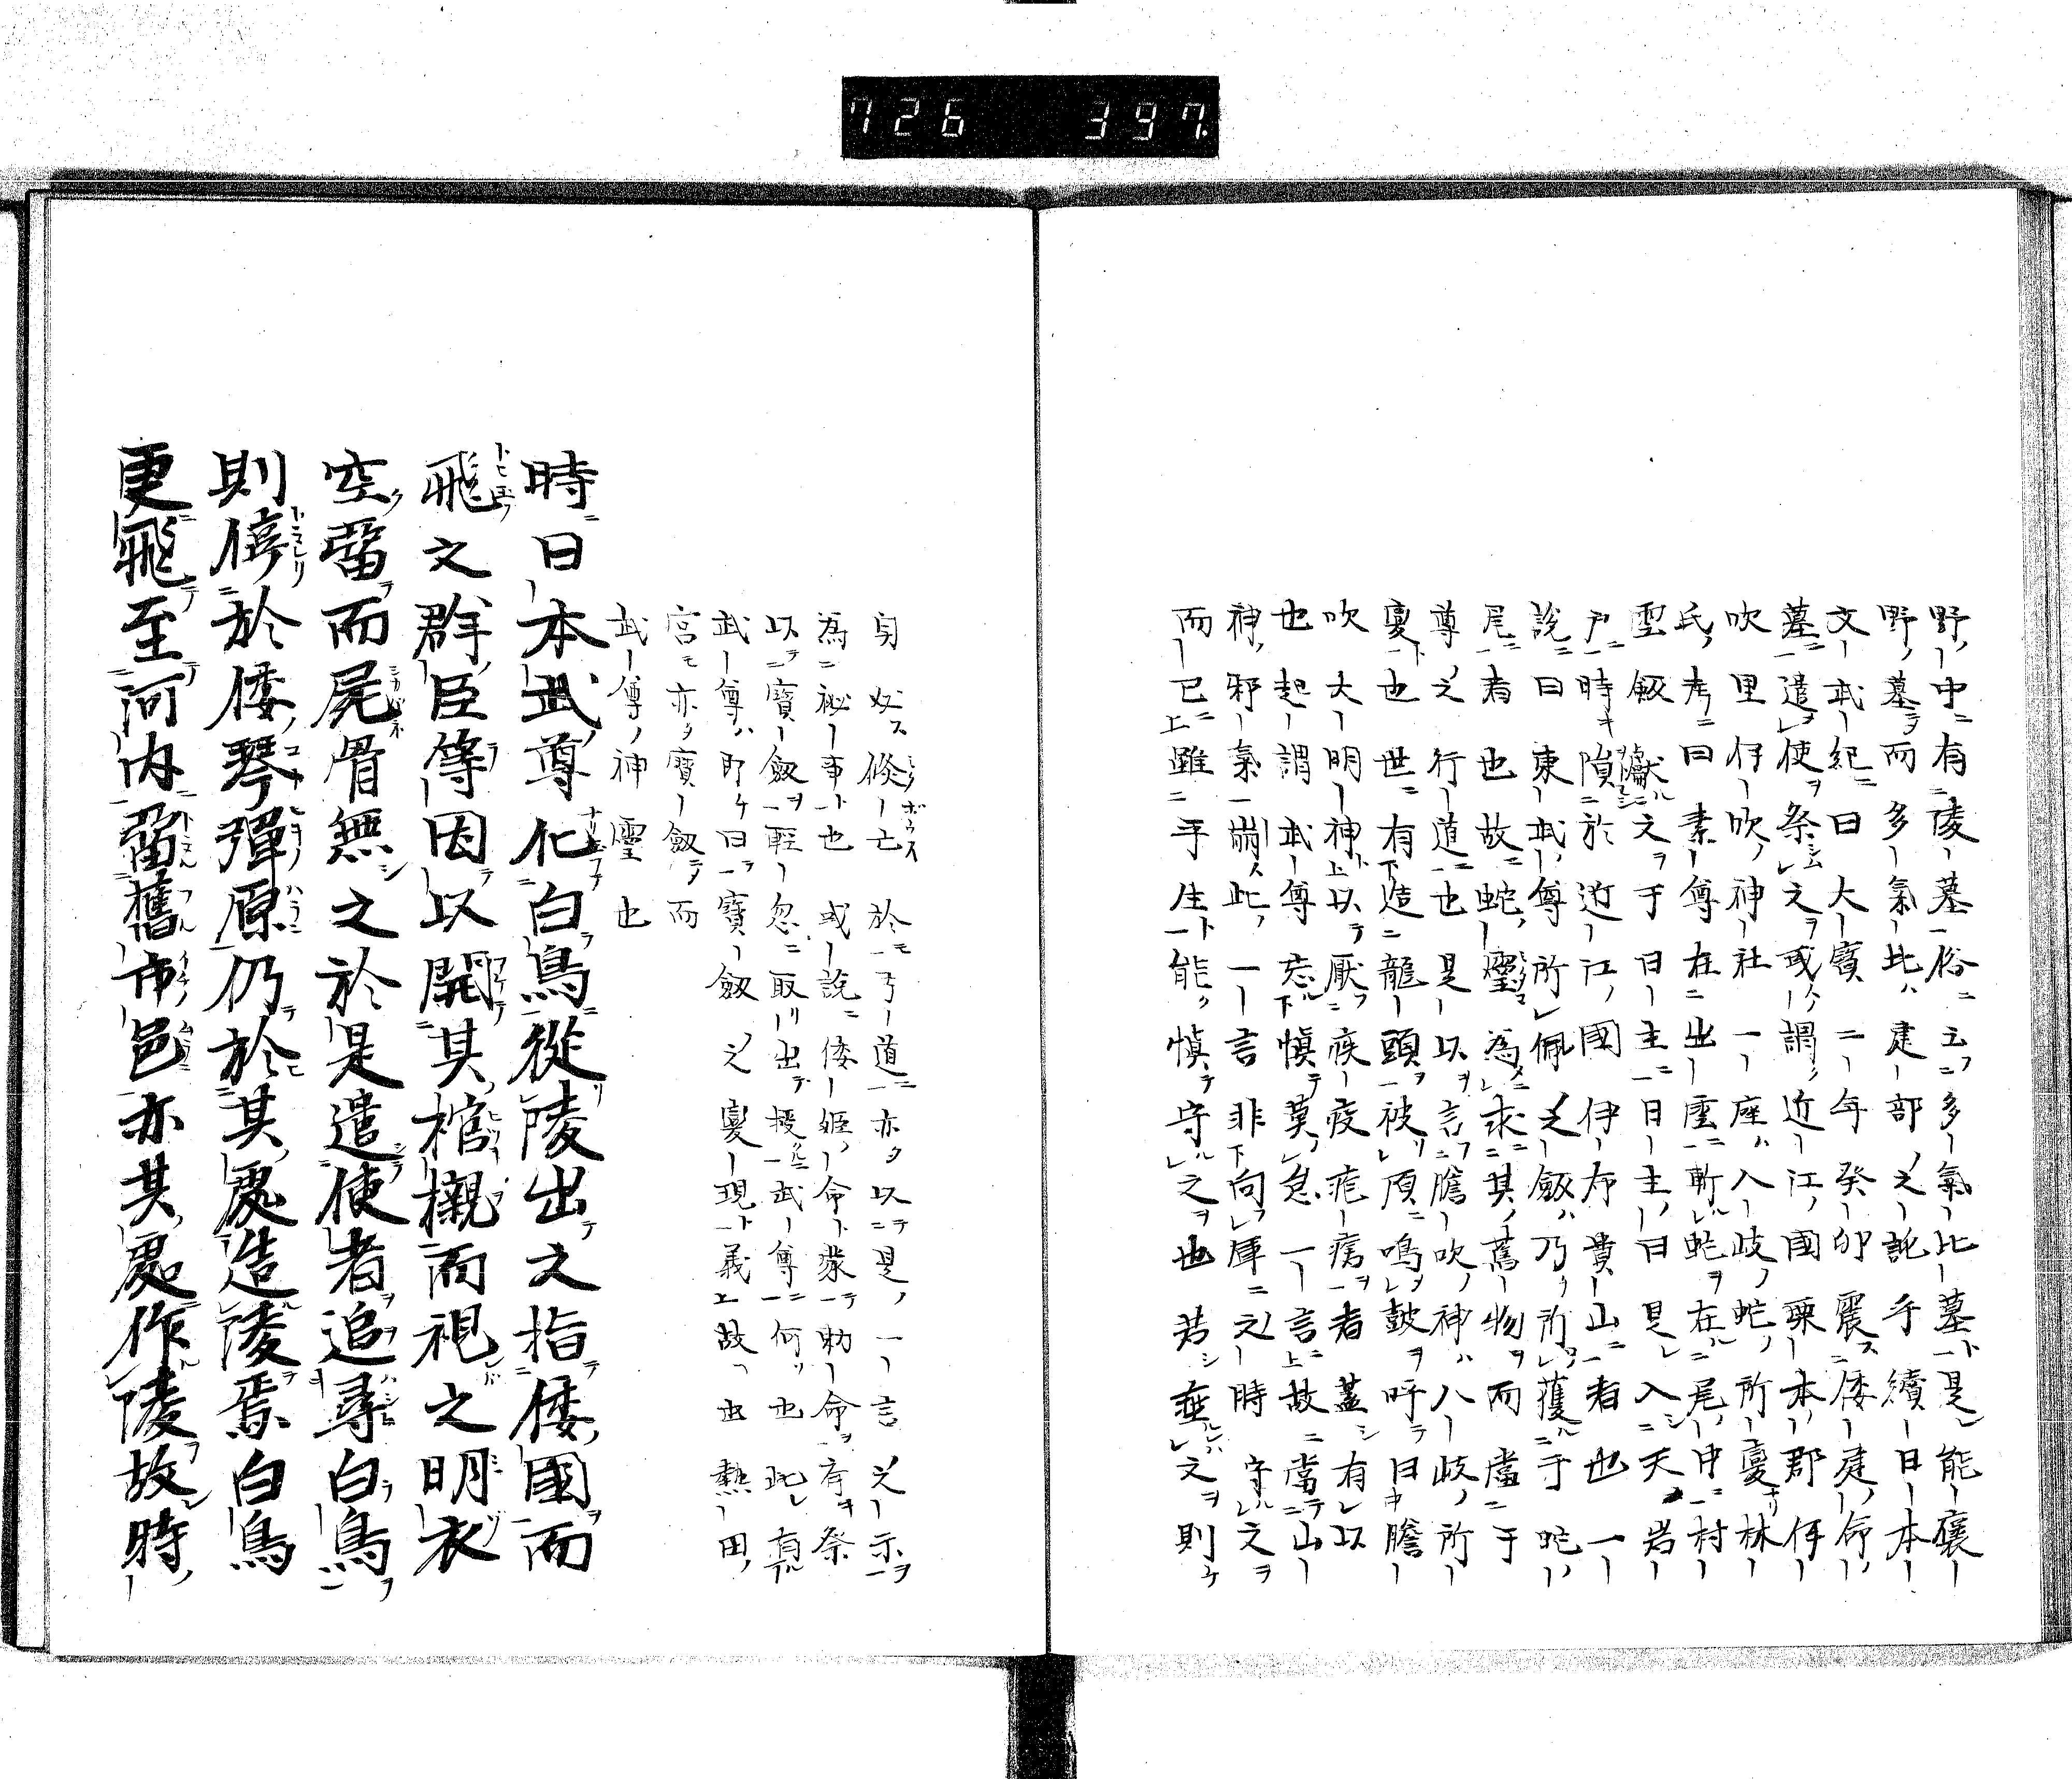 726 397.
野中有陵墓俗云多氣比墓是能褒
野墓而多氣比建部之訛乎續日本
文武紀曰大寶二年癸卯震倭建命
墓遣使祭之或謂近江國栗本郡伊
吹里伊吹神社一座八岐蛇所変林
氏考曰素尊在出雲斬蛇在尾中村
雲劔獻之于日主日主曰是入天岩
戸時隕於近江國伊布貴山者也一
說曰東武尊所佩之劔乃所獲于蛇
尾者也故蛇靈為求其舊物而當于
尊之行道也是以言膽吹神八岐所
変也世有造龍頭被頂鳴鼓吁曰膽
吹大明神以厭疾疫疟病者蓋有以
也起謂武尊忘慎莫怠一言故當山
神邪氣崩此一言非向庫之時守之
而已雖平生能慎守之也若無之則
身必倏亡於弓道亦以是一言之示
為祕事也或說倭姬命蒙勅命有祭
以寶劔輕忽取出授武尊何也此有
武尊即日寶劔之変現義故也熱田
宮亦寶劔而
武尊神靈也
時日本武尊化白鳥從陵出之指倭國而
飛之群臣等因以開其棺櫬而視之明衣
空留而屍骨無之於是遣使者追尋白鳥
則停於倭琴彈原仍於其處造陵焉白鳥
更飛至河內留舊市邑亦其處作陵故時